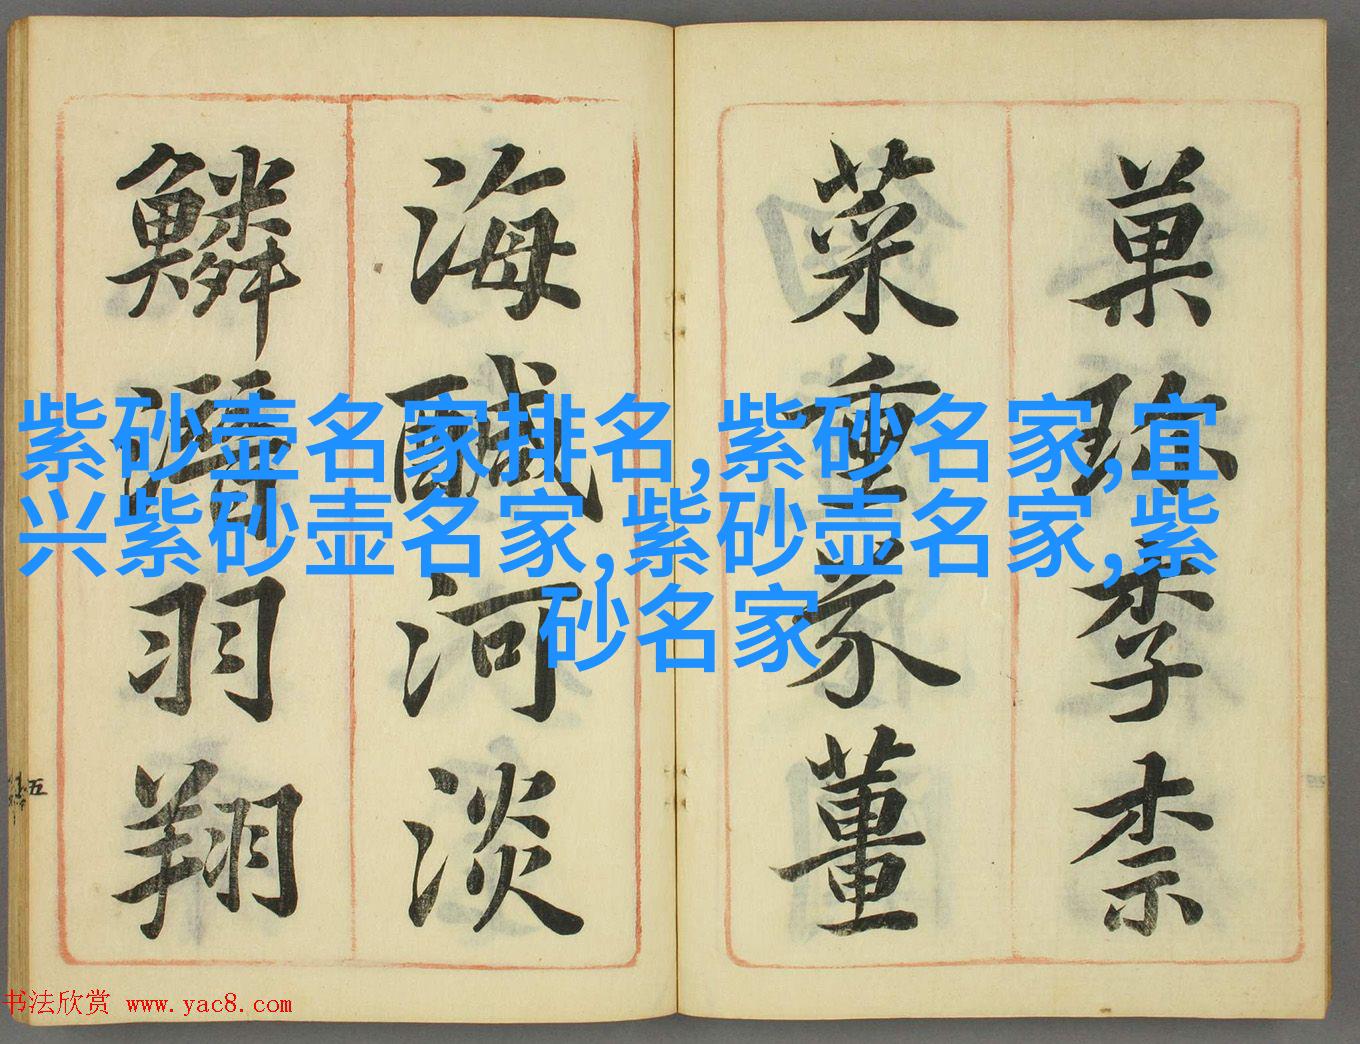 菓珍李柰
菜重芥薑
海醎河淡
鱗潛羽翔
五
紫砂壶名家排名,紫砂名家,宜
兴紫砂壶名家,紫砂壶名家,紫
砂名家
书法欣赏 www.yac8.com